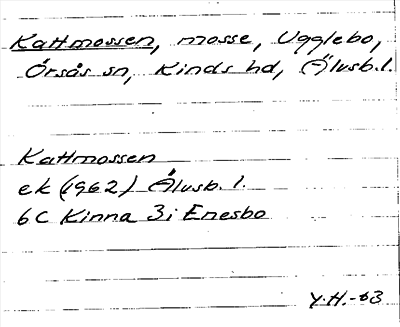 Kattmossen, mosse, Ugglebo,
Örsås sn, Kinds hd, Älvsb. l.
Kattmossen
ek (1962) Älvsb. l.
6C Kinna 3i Enesbo
Y.H.-63